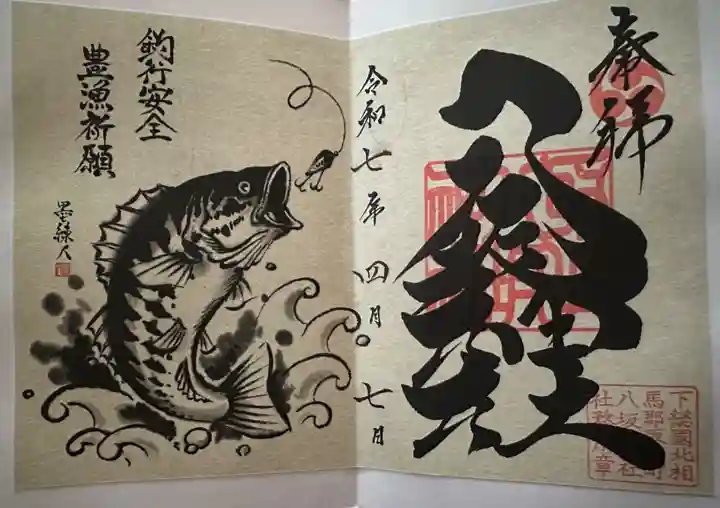 奉拝
八坂神社
令和七年四月七日
下總國北相
馬郡町
八坂社
社務章
釣行安全
豊漁祈願